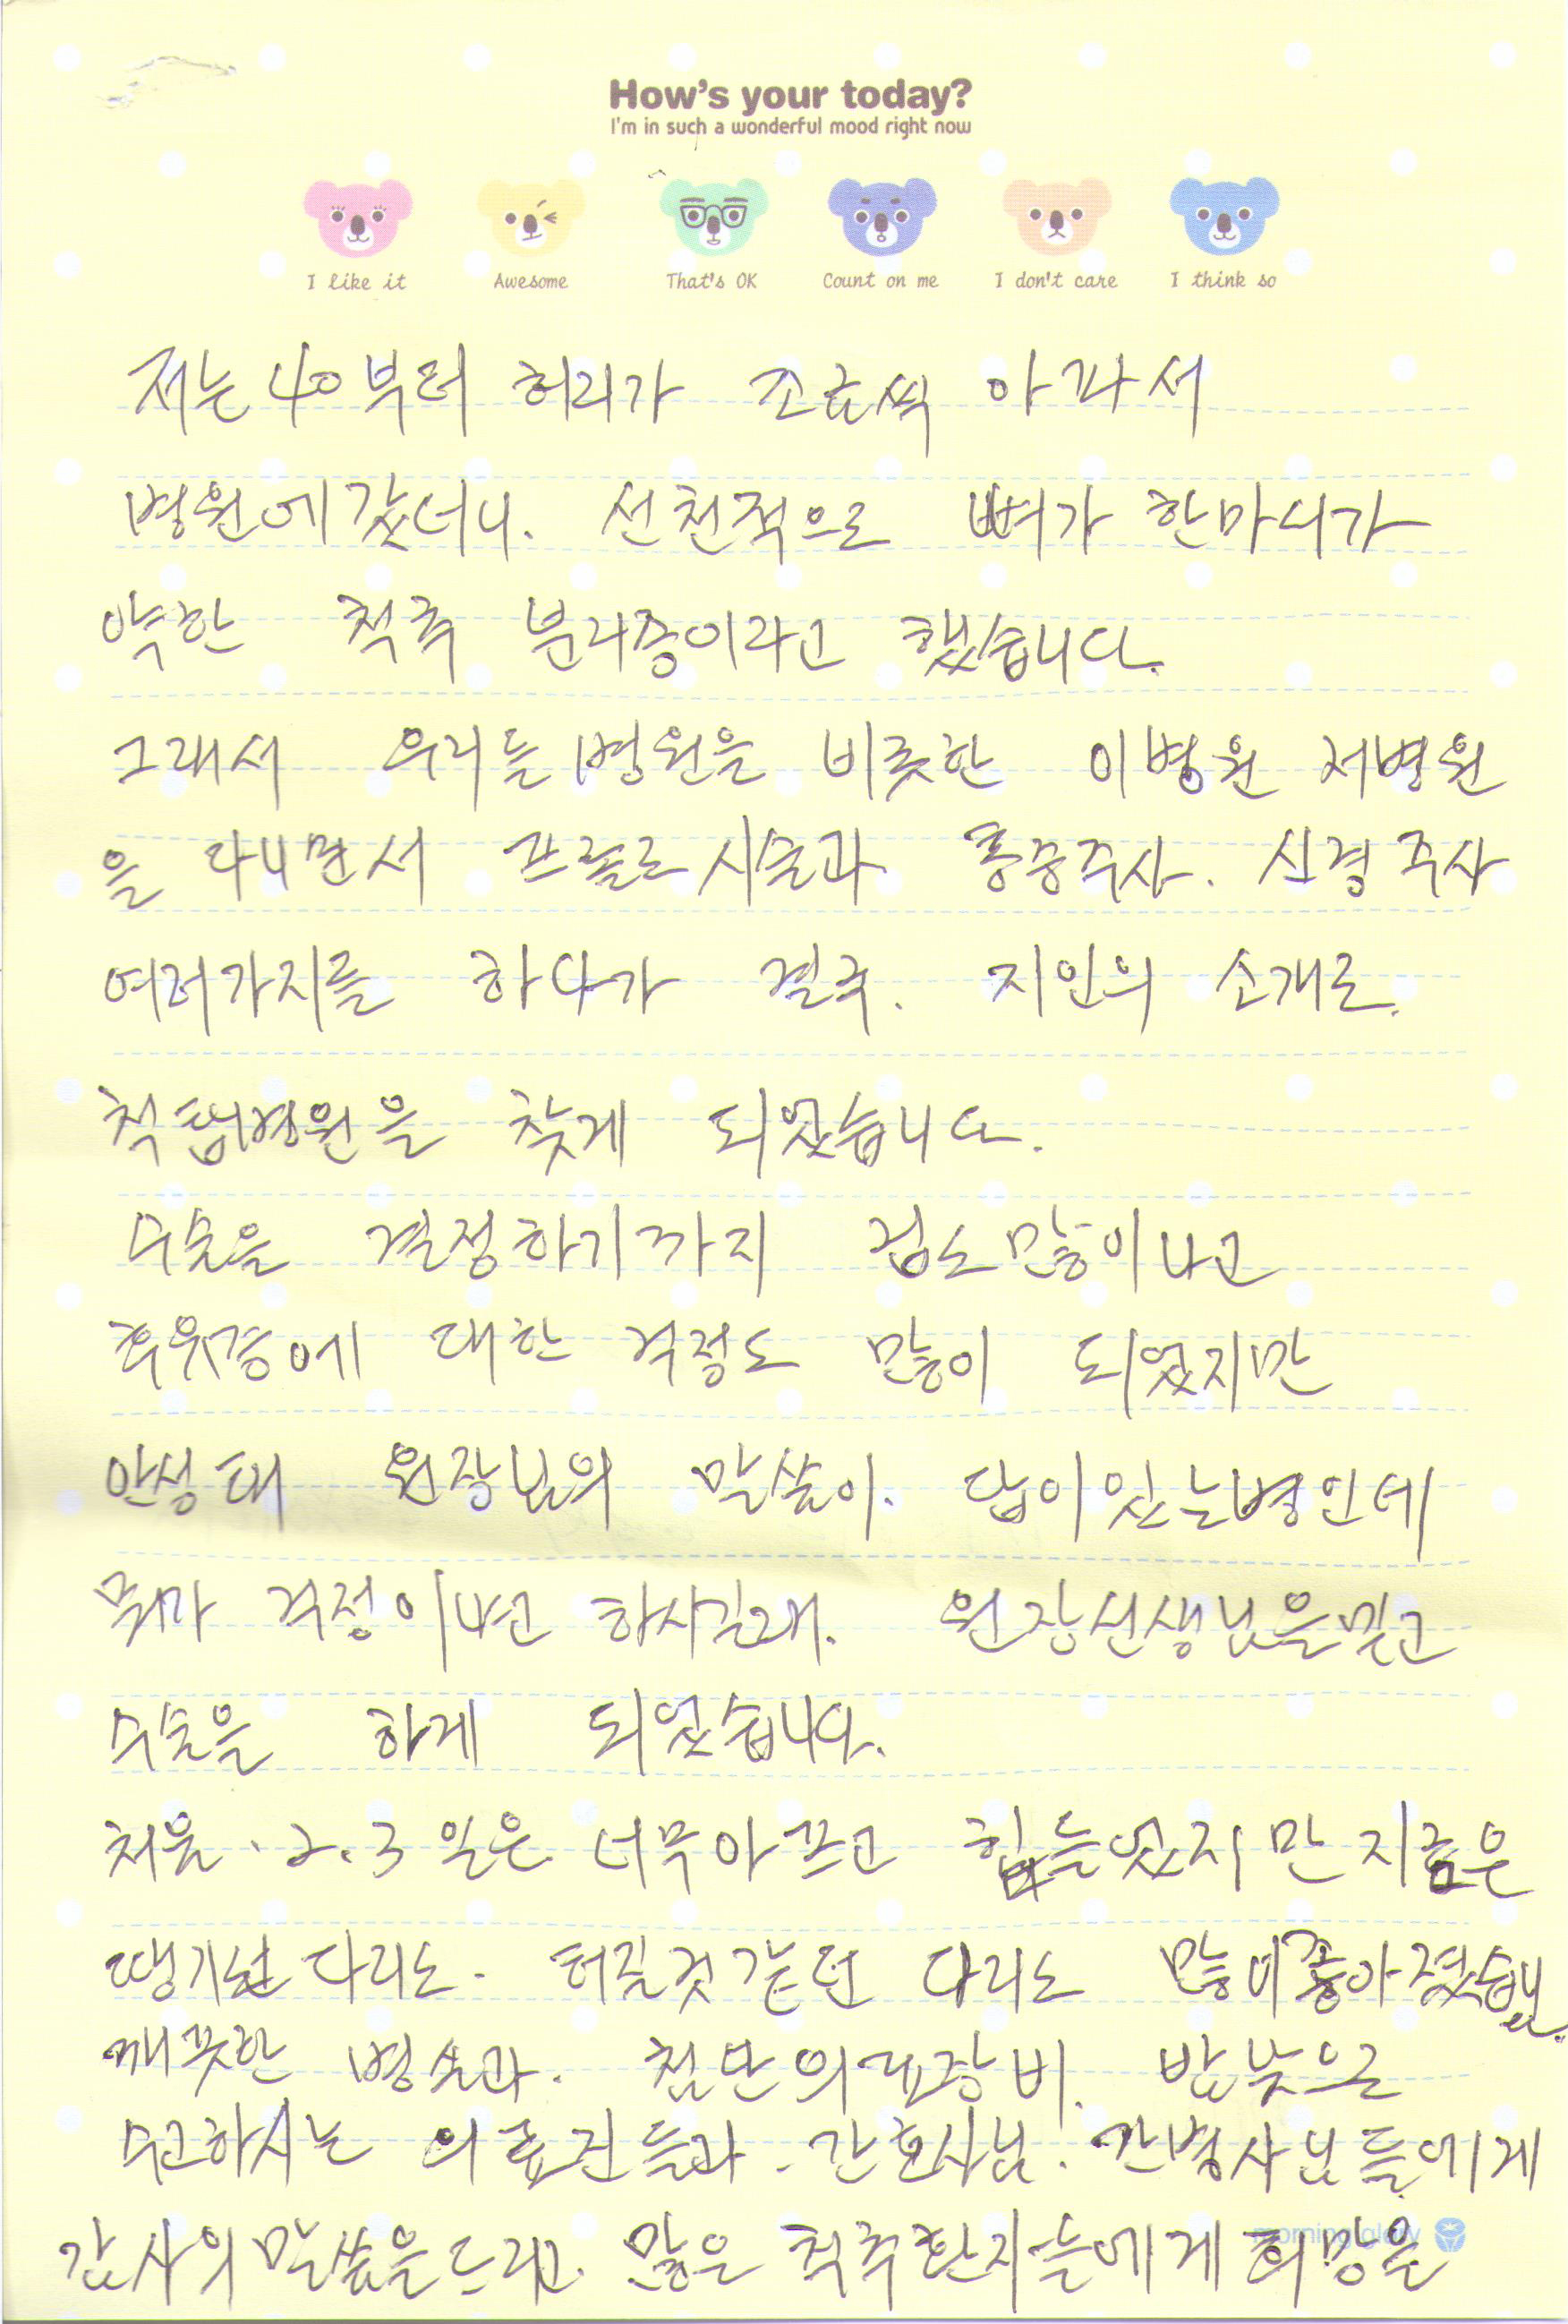 How's your today?
I'm in such a wonderful mood right now
I like it Awesome That's OK Count on me I don't care I think so
저는 40부터 허리가 조금씩 아파서
병원에 갔더니. 선천적으로 뼈가 한마디가
약한 척추 분리증이라고 했습니다.
그래서 우리들병원을 비롯한 이병원 저병원
을 다니면서 프롤로시술과 통증주사. 신경주사
여러가지를 하다가 결국. 지인의 소개로.
척탑병원을 찾게 되었습니다.
수술을 결정하기까지 겁도많이나고
후유증에 대한 걱정도 많이 되었지만
안성태 원장님의 말씀이. 답이있는병인데
뭐가 걱정이냐고 하시길래. 원장선생님을믿고
수술을 하게 되었습니다.
처음. 2.3일은 너무아프고 힘들었지만 지금은
땡기던 다리도. 터질것같던 다리도 많이좋아졌습니다.
깨끗한 병실과. 첨단의료장비. 밤낮으로
수고하시는 의료진들과. 간호사님. 간병사님들에게
감사의말씀을드리고. 많은 척추환자들에게 희망을
morning glory